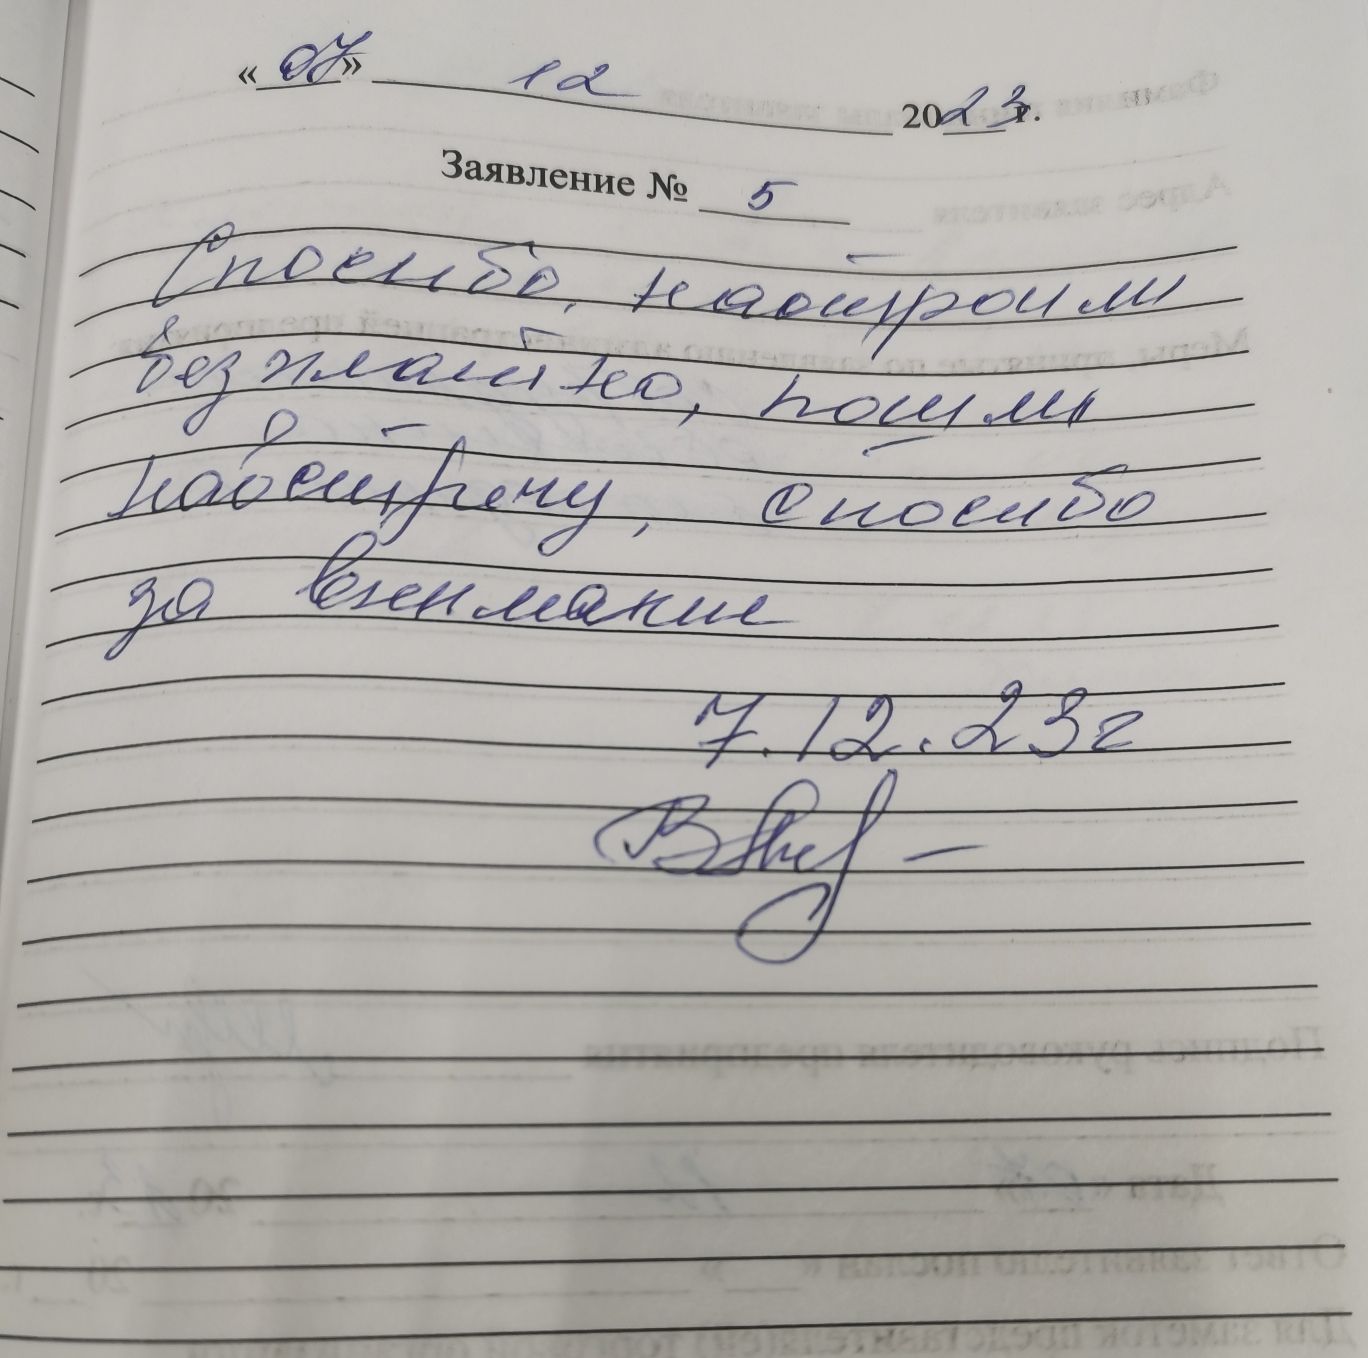 «07» 12 2023 г.
Заявление № 5
Спосибо, настроили
безплатно, пошли
навстречу, спосибо
за внимание
7.12.23г